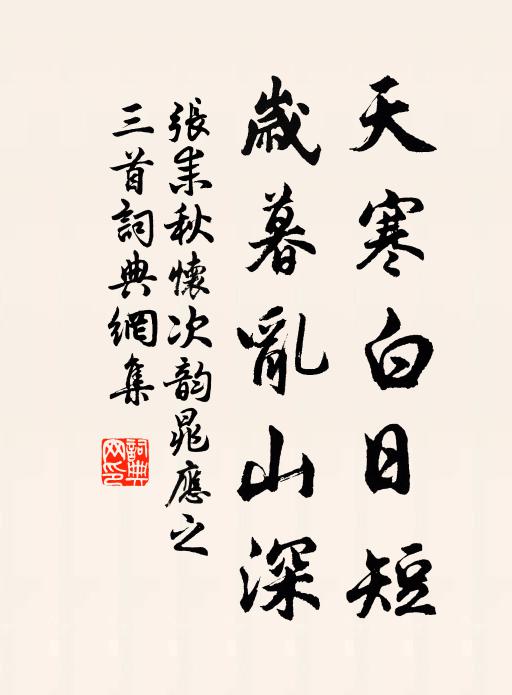 天寒白日短
歲暮亂山深
張耒秋懷次韵晁應之
三首詞典網集
詞典
网印